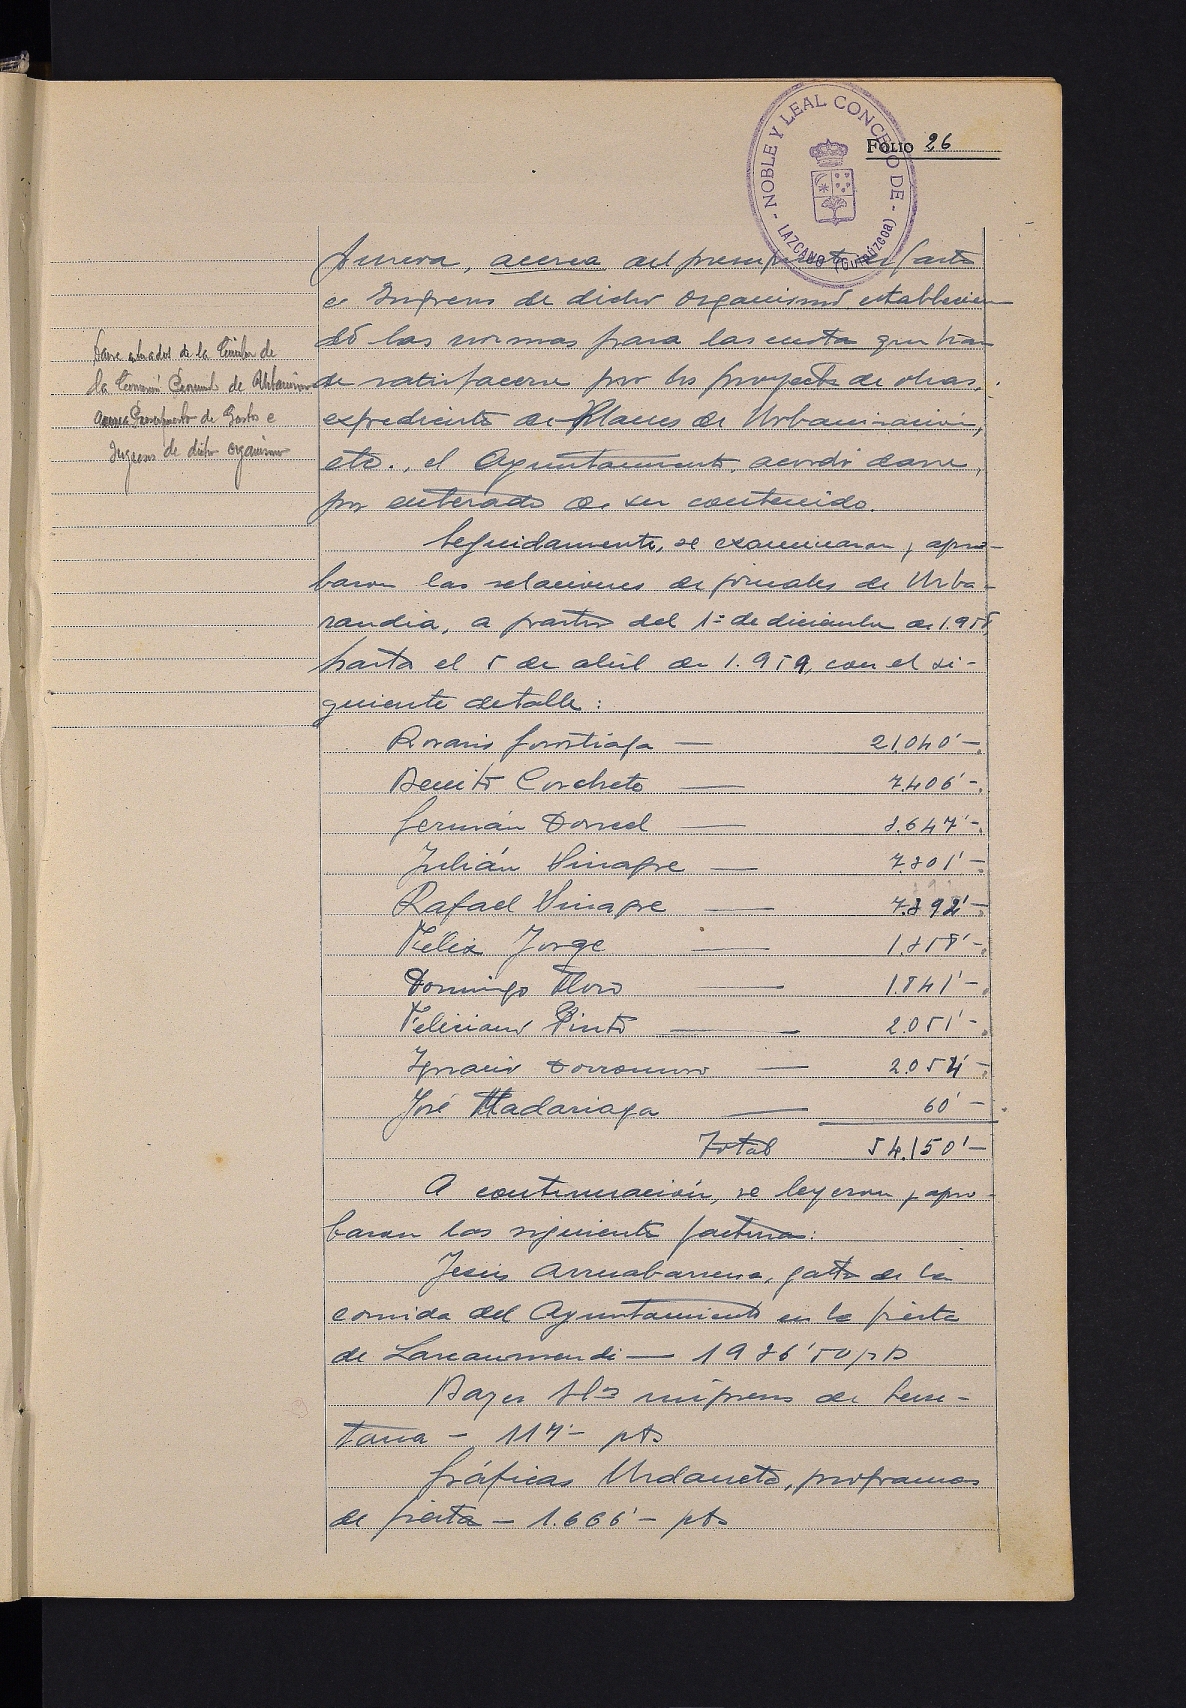 NOBLE Y LEAL CONCEJO DE
LAZCANO (Guipúzcoa)
FOLIO 26
acerca del presupuesto de Gastos
e Ingresos de dicho organismo, establecien
do las normas para las cuotas que han
de satisfacerse por los proyectos de obras,
expedientes de Planes de Urbanización,
etc., el Ayuntamiento, acordó darse,
por enterado de su contenido.
Darse enterados de la Circular de
la Comisión Provincial de Urbanismo
acerca Presupuesto de Gastos e
Ingresos de dicho organismo
Seguidamente, se examinaron y apro-
baron las relaciones de jornales de Urba-
randia, a partir del 1º de diciembre de 1.958,
hasta el 5 de abril de 1.959, con el si-
guiente detalle:
Rosario Gorostiaga — 21.040'-
Benito Corchete — 7.406'-
Germán Donced — 3.647'-
Julián Vinagre — 7.301'-
Rafael Vinagre — 7.392'-
Félix Jorge — 1.358'-
Domingo Moro — 1.841'-
Feliciano Pinto — 2.051'-
Ignacio Dorronsoro — 2.054'-
José Madariaga — 60'-
Total 54.150'-
A continuación, se leyeron y apro-
baron las siguientes facturas:
Jesús Arruabarrena, gastos de la
comida del Ayuntamiento en la fiesta
de Lazcaomendi — 1936'50 pts
impresos de Secre-
taría — 117'- pts
Gráficas Urdaneta, programas
de fiestas — 1.666'- pts